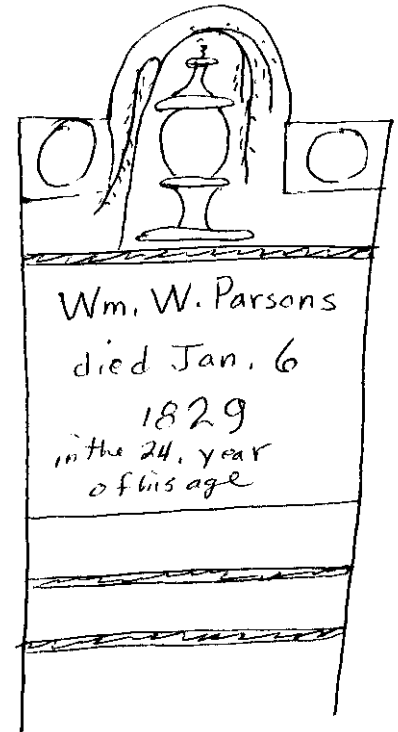 Wm. W. Parsons
died Jan. 6
1829
in the 24. year
of his age